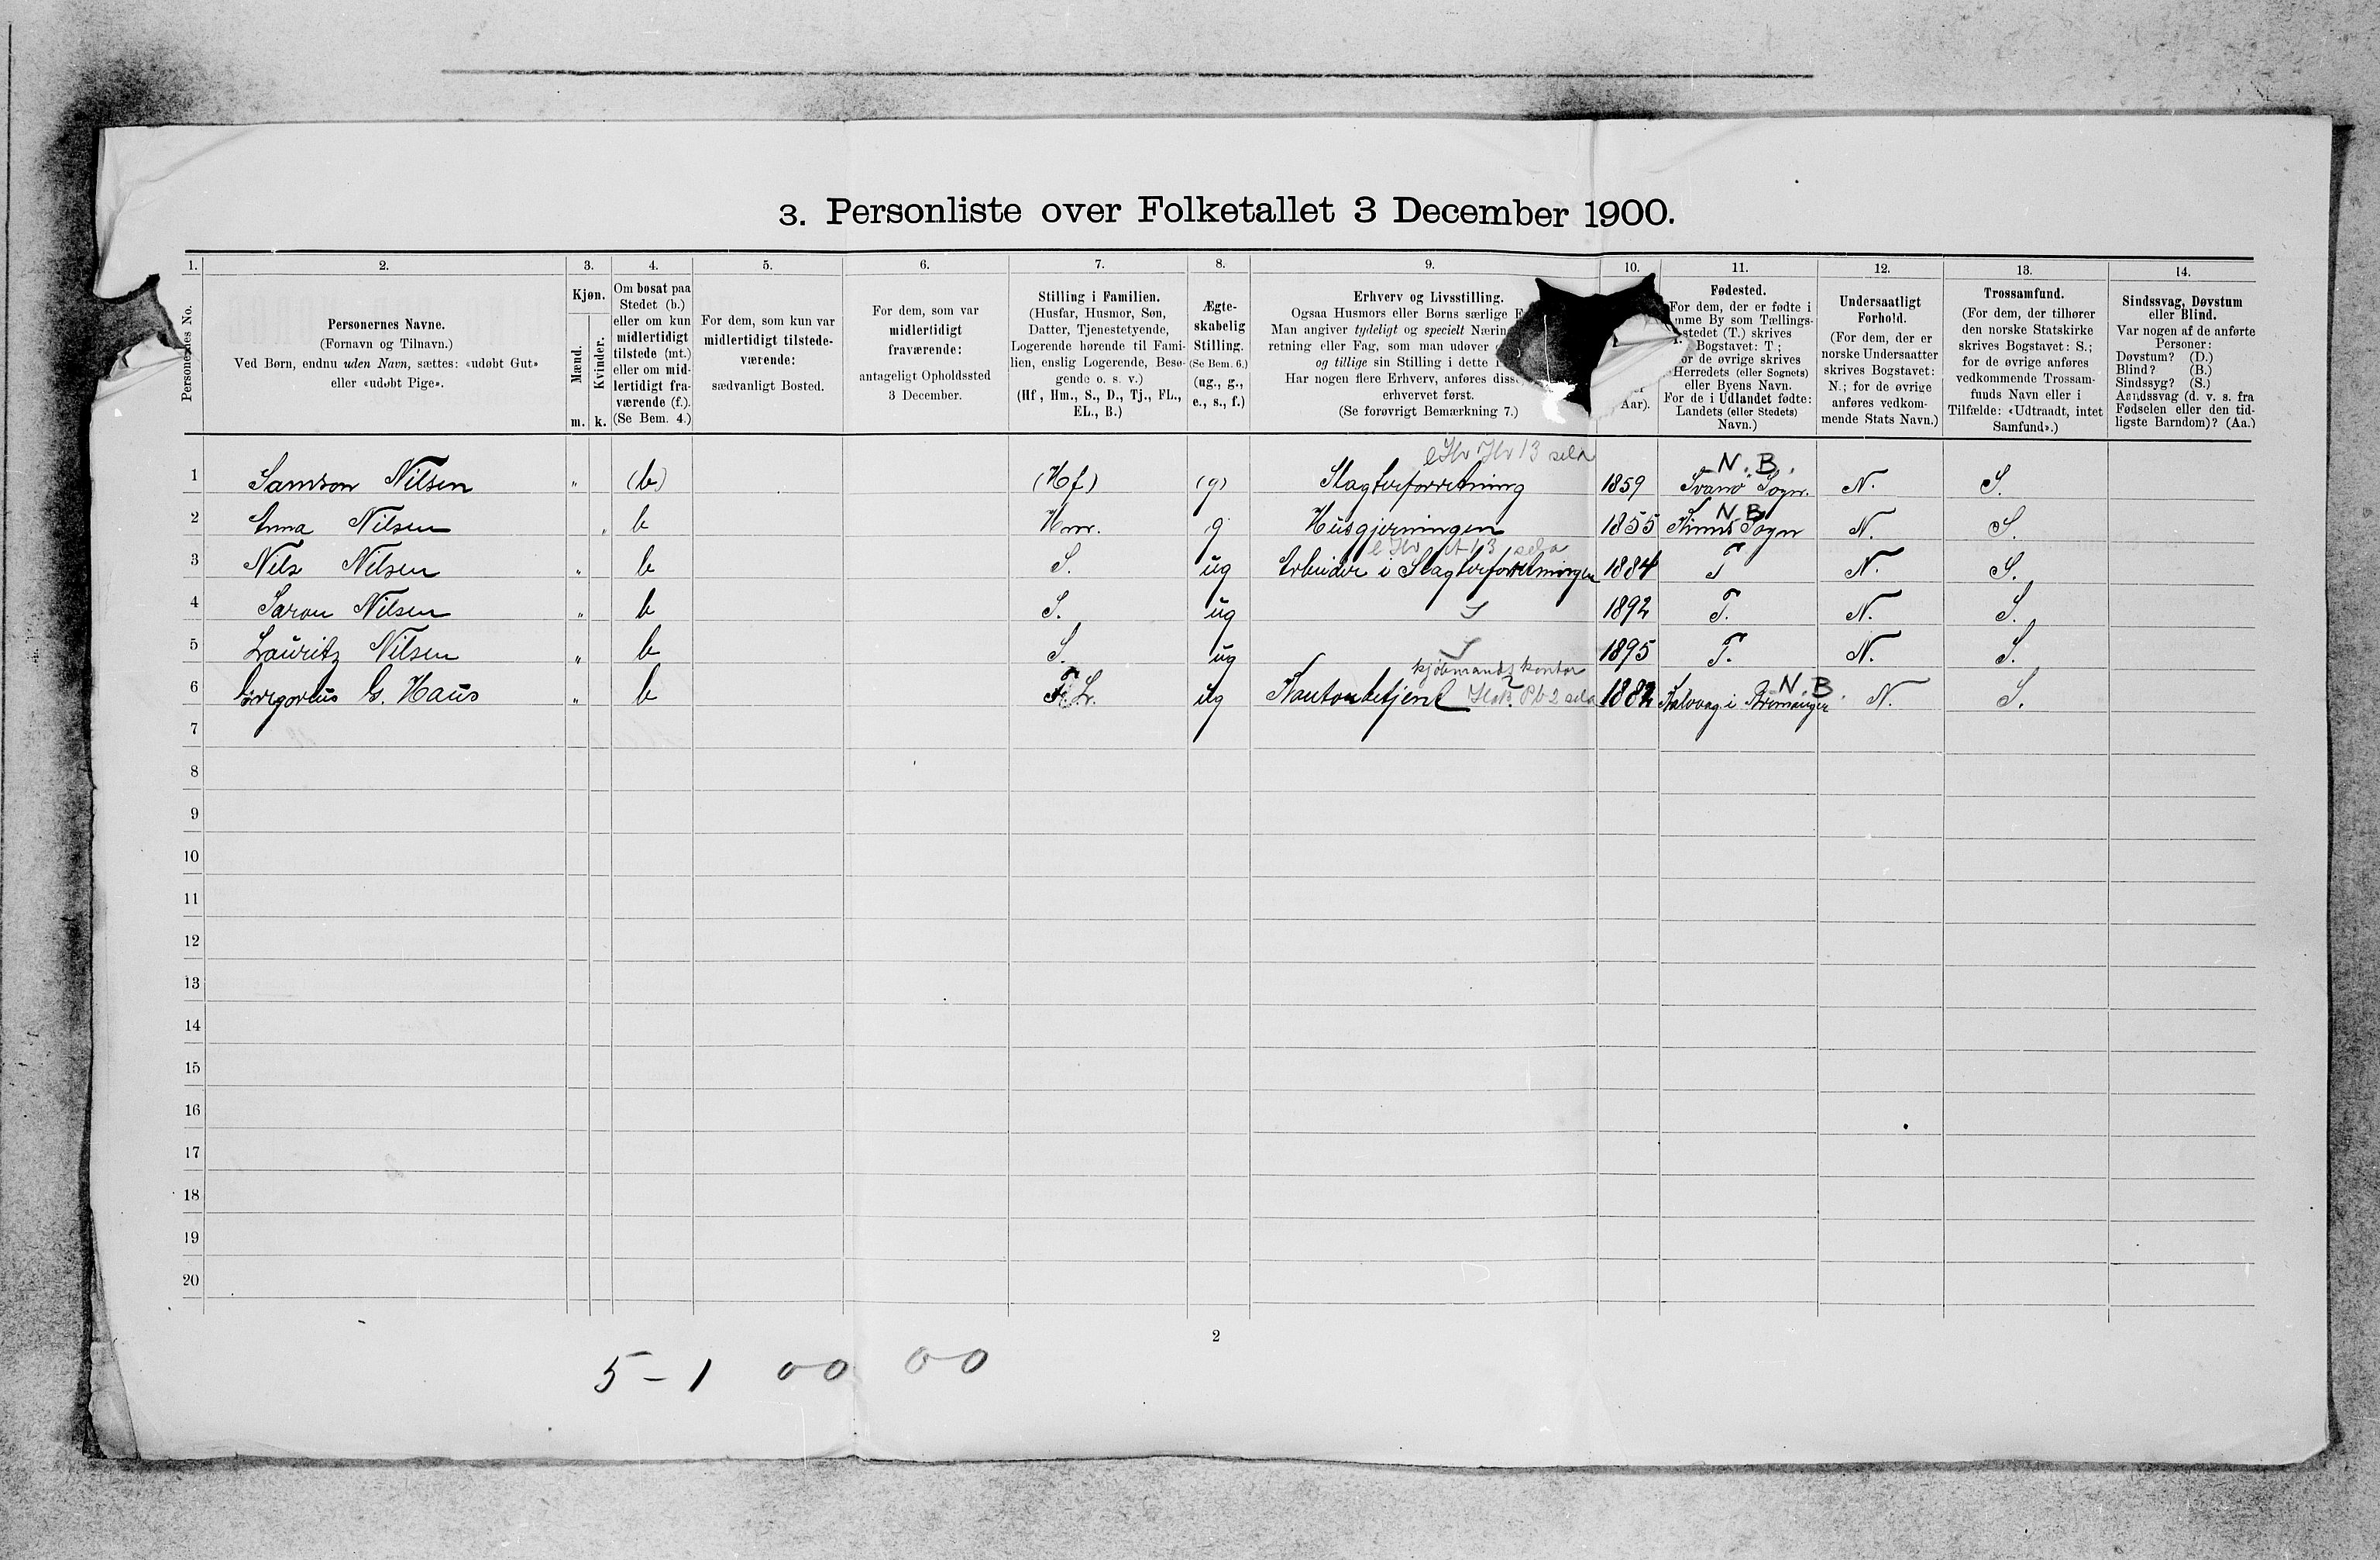 3. Personliste over Folketallet 3 December 1900.
1. 2. 3. 4. 5. 6. 7. 8. 9. 10. 11. 12. 13. 14.
Personernes No.
Personernes Navne.
(Fornavn og Tilnavn.)
Ved Børn, endnu uden Navn, sættes: «udøbt Gut»
eller «udøbt Pige».
Kjøn.
Mænd.
Kvinder.
m. k.
Om bosat paa
Stedet (b.)
eller om kun
midlertidigt
tilstede (mt.)
eller om mid-
lertidigt fra-
værende (f.).
(Se Bem. 4.)
For dem, som kun var
midlertidigt tilstede-
værende:
sædvanligt Bosted.
For dem, som var
midlertidigt
fraværende:
antageligt Opholdssted
3 December.
Stilling i Familien.
(Husfar, Husmor, Søn,
Datter, Tjenestetyende,
Logerende hørende til Fami-
lien, enslig Logerende, Besø-
gende o. s. v.)
(Hf., Hm., S., D., Tj., FL.,
EL., B.)
Ægte-
skabelig
Stilling.
(Se Bem. 6.)
(ug., g.,
e., s., f.)
Erhverv og Livsstilling.
Ogsaa Husmors eller Børns særlige E
Man angiver tydeligt og specielt Nærin
retning eller Fag, som man udøver
og tillige sin Stilling i dette
Har nogen flere Erhverv, anføres diss
erhvervet først.
(Se forøvrigt Bemærkning 7.)
Aar).
Fødested.
For dem, der er fødte i
mme By som Tællings-
stedet (T.) skrives
Bogstavet: T.;
or de øvrige skrives
Herredets (eller Sognets)
eller Byens Navn.
For de i Udlandet fødte:
Landets (eller Stedets)
Navn.)
Undersaatligt
Forhold.
(For dem, der er
norske Undersaatter
skrives Bogstavet:
N.; for de øvrige
anføres vedkom-
mende Stats Navn.)
Trossamfund.
(For dem, der tilhører
den norske Statskirke
skrives Bogstavet: S.;
for de øvrige anføres
vedkommende Trossam-
funds Navn eller i
Tilfælde: «Udtraadt, intet
Samfund».)
Sindssvag, Døvstum
eller Blind.
Var nogen af de anførte
Personer:
Døvstum? (D.)
Blind? (B.)
Sindssyg? (S.)
Aandssvag (d. v. s. fra
Fødselen eller den tid-
ligste Barndom)? (Aa.)
13 selv N. B.
1 Samson Nilsen " (b) (Hf) (g) Slagterforretning 1859 Svanø Sogn. N. S.
N B
2 Anna Nilsen " b Hm. g Husgjerningen 1855 Kinns Sogn N. S.
3 Nils Nilsen " b S. ug Arbeider i Slagterforretningen 1884 T N. S.
4 Saron Nilsen " b S. ug 1892 T. N. S.
5 Lauritz Nilsen " b S. ug 1895 T. N. S.
kjøbmands kontor N. B.
6 Gregorius G. Haus " b ug Kontorbetjent 1882 Kalvaag i Bremanger N. S.
7
8
9
10
11
12
13
14
15
16
17
18
19
20
2
5 - 1 00 00